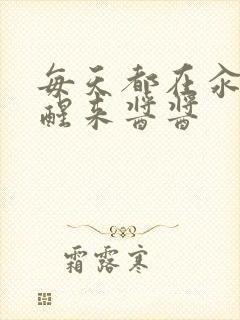 每天都在汆
醒来酱酱
霜露寒